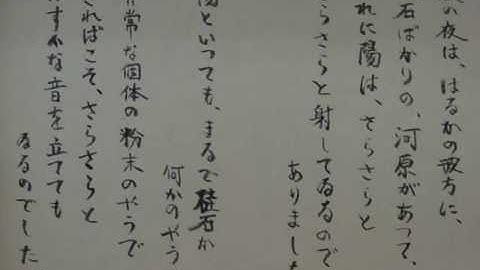 の夜は、はるかの彼方に、
石ばかりの、河原があつて、
れに陽は、さらさらと
らさらと射してゐるので
ありました
陽といつても、まるで硅石か
何かのやう
非常な個体の粉末のやうで
ればこそ、さらさらと
すかな音を立てても
ゐるのでした